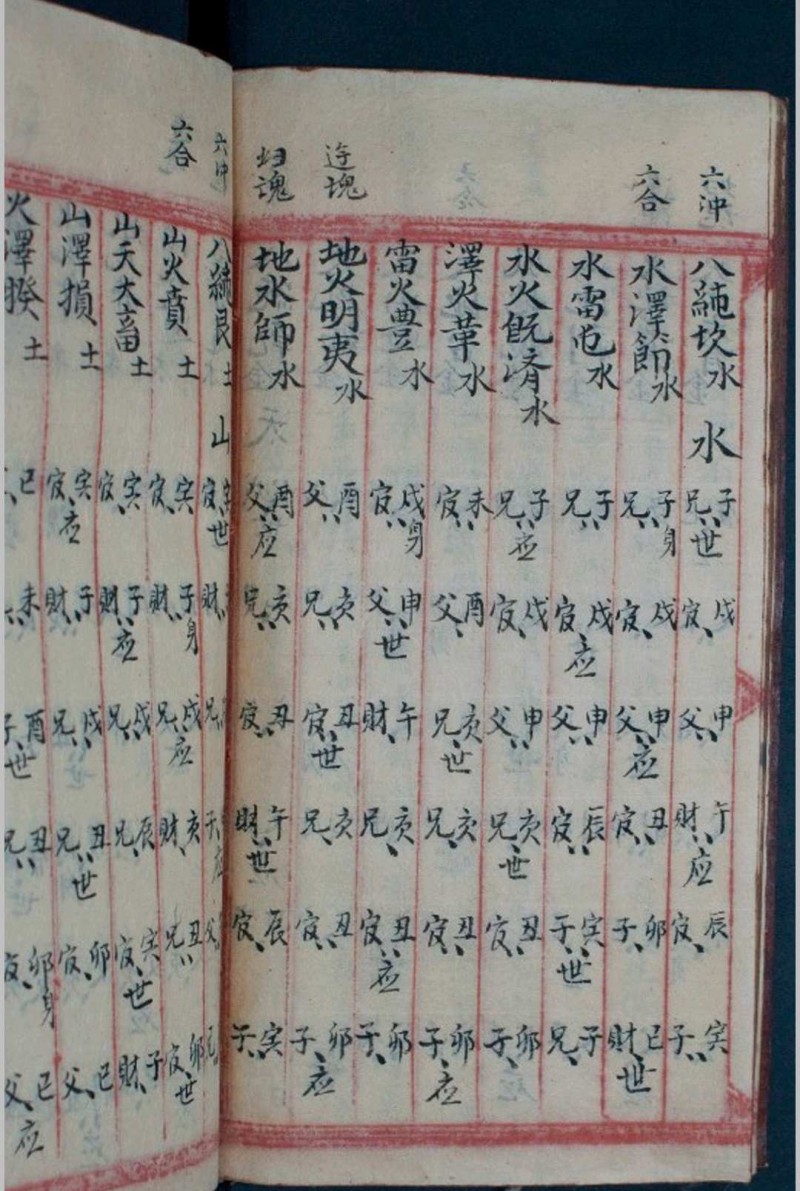 六沖 八純坎水 水 子兄世 戌官 申父 午財应 辰官 寅子
六合 水澤節水 子兄身 戌官 申父应 丑官 卯子 巳財世
水雷屯水 子兄 戌官应 申父 辰官 寅子世 子兄
水火既済水 子兄应 戌官 申父 亥兄世 丑官 卯子
澤火革水 未官 酉父 亥兄世 亥兄 丑官 卯子应
雷火豊水 戌官身 申父世 午財 亥兄 丑官应 卯子
塊 地火明夷水 酉父 亥兄 丑官世 亥兄 丑官 卯子应
归魂 地水師水 酉父应 亥兄 丑官 午財世 辰官 寅子
六沖 八純艮土 山 寅官世 財 兄 子应 父
六合 山火賁土 寅官 子財身 戌兄应 亥財 丑兄 卯官世
山天大畜土 寅官 子財应 戌兄 辰兄 寅官世 子財
山澤損土 寅官应 子財 戌兄 丑兄世 卯官 巳父
火澤揆土 巳 未 酉子世 丑兄 卯官身 巳父应